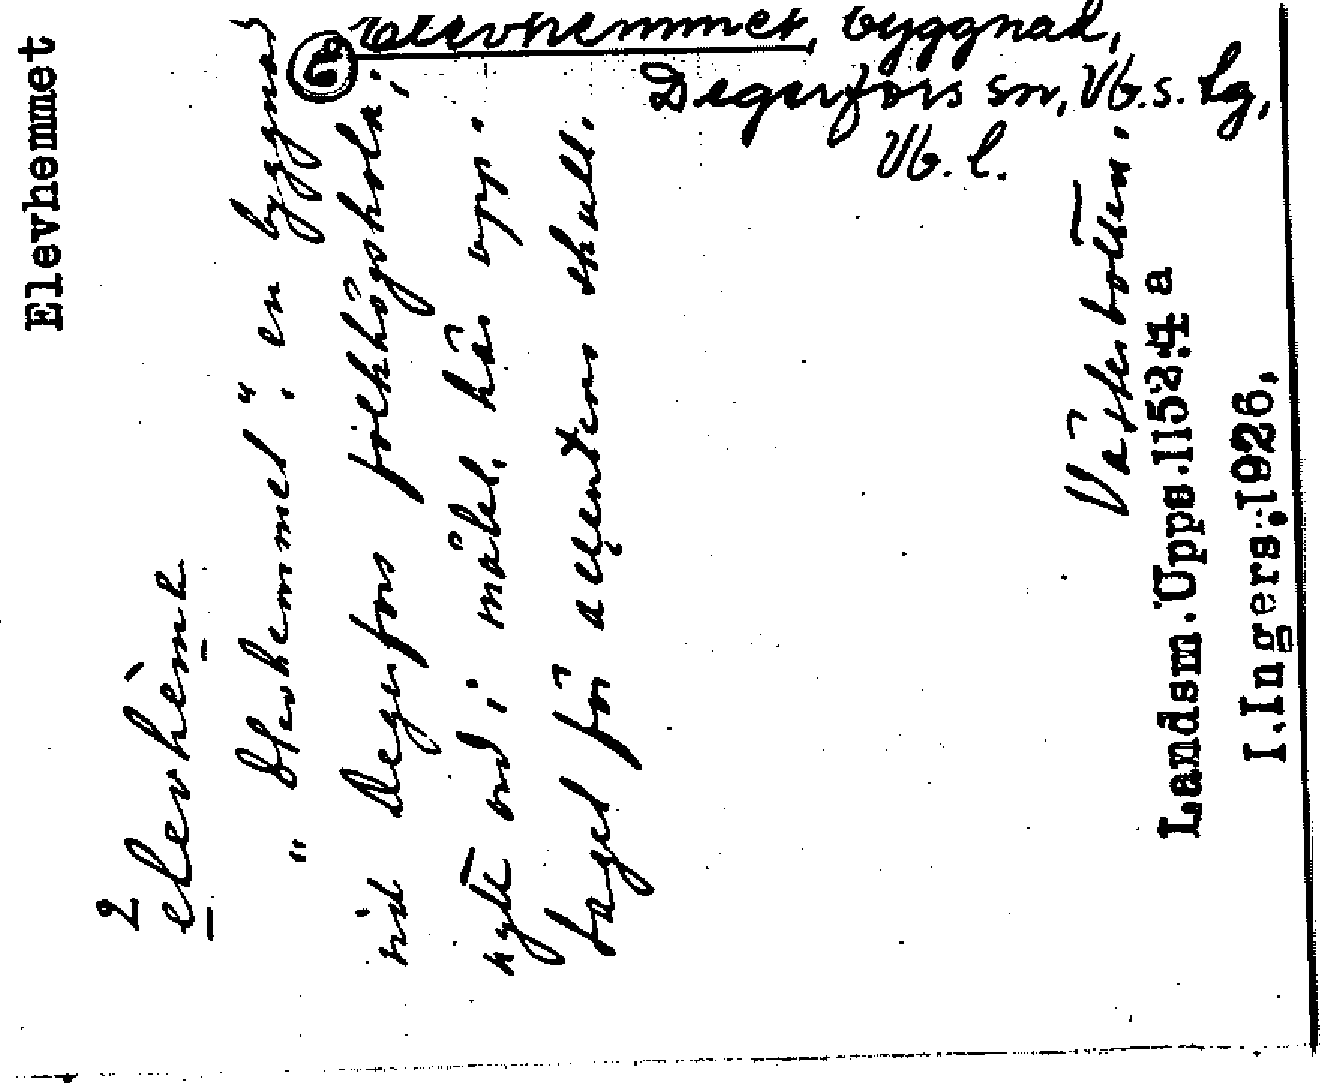 Elevhemmet, byggnad,
Degerfors sn, Vb.s. lg,
Vb. l.
Elevhemmet
2
elevhèmt
"Elevhemmet", en byggnad
vid Degerfors folkhögskola,
nytt ord i målet, här upp-
taget för accentens skull.
Västerbotten.
Landsm.Upps.1152:4 a
I.Ingers.1926,